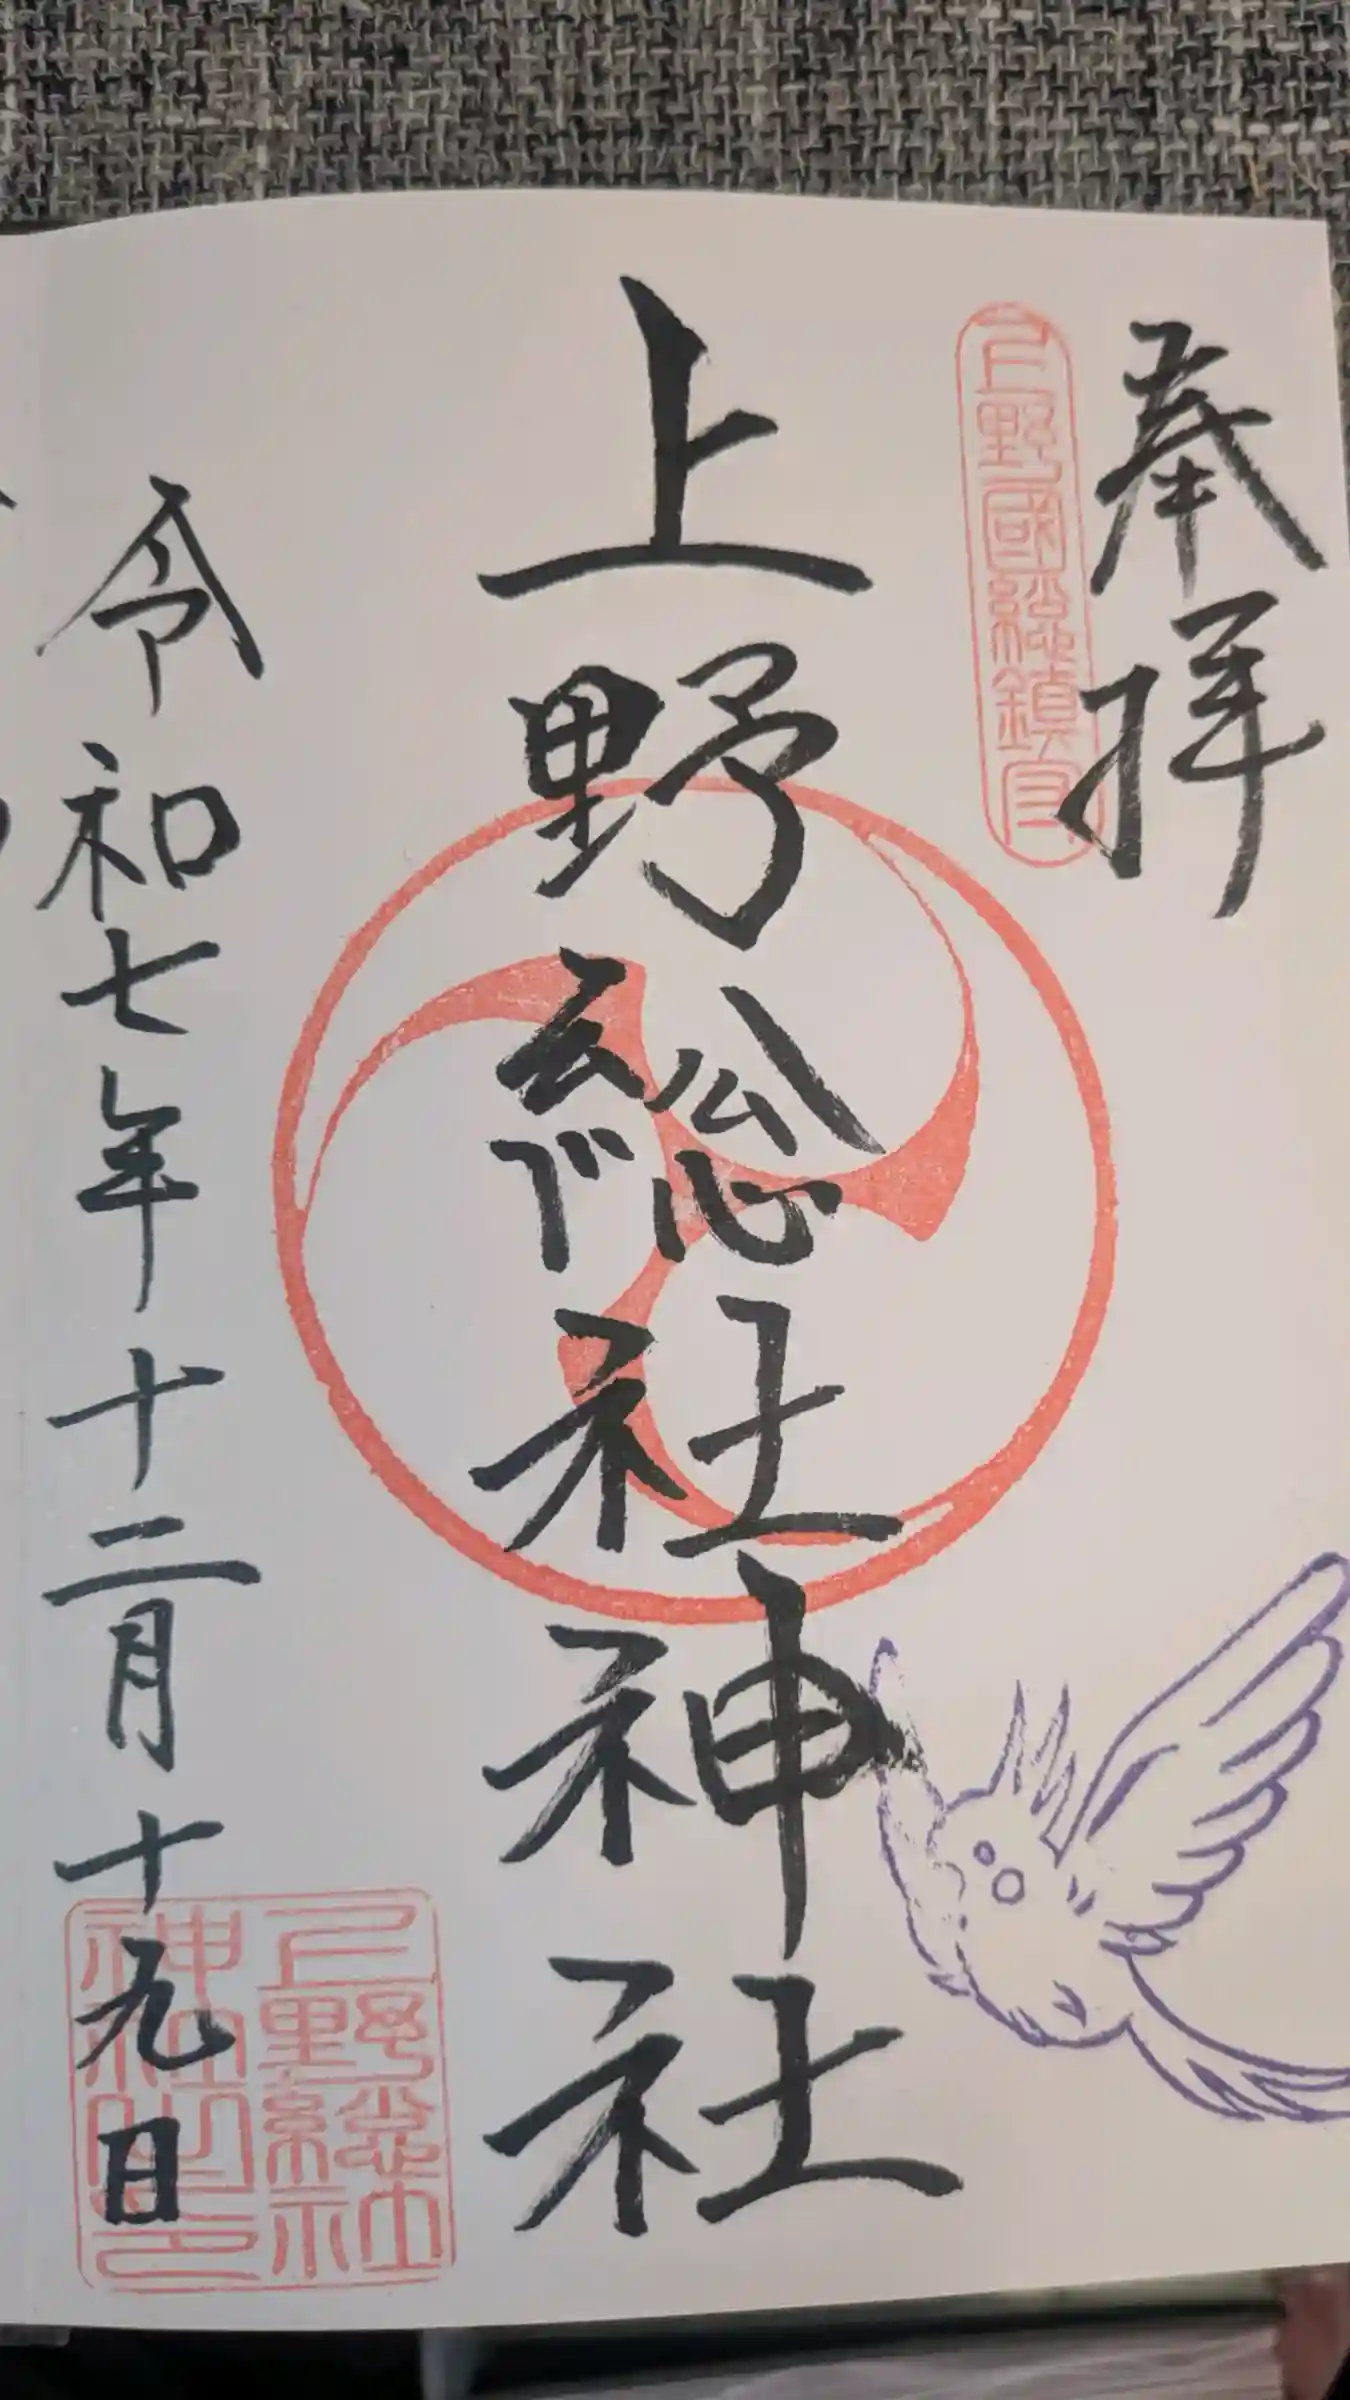 奉拝
上野國総鎮守
上野総社神社
令和七年十二月十九日
上野総社
神社之印